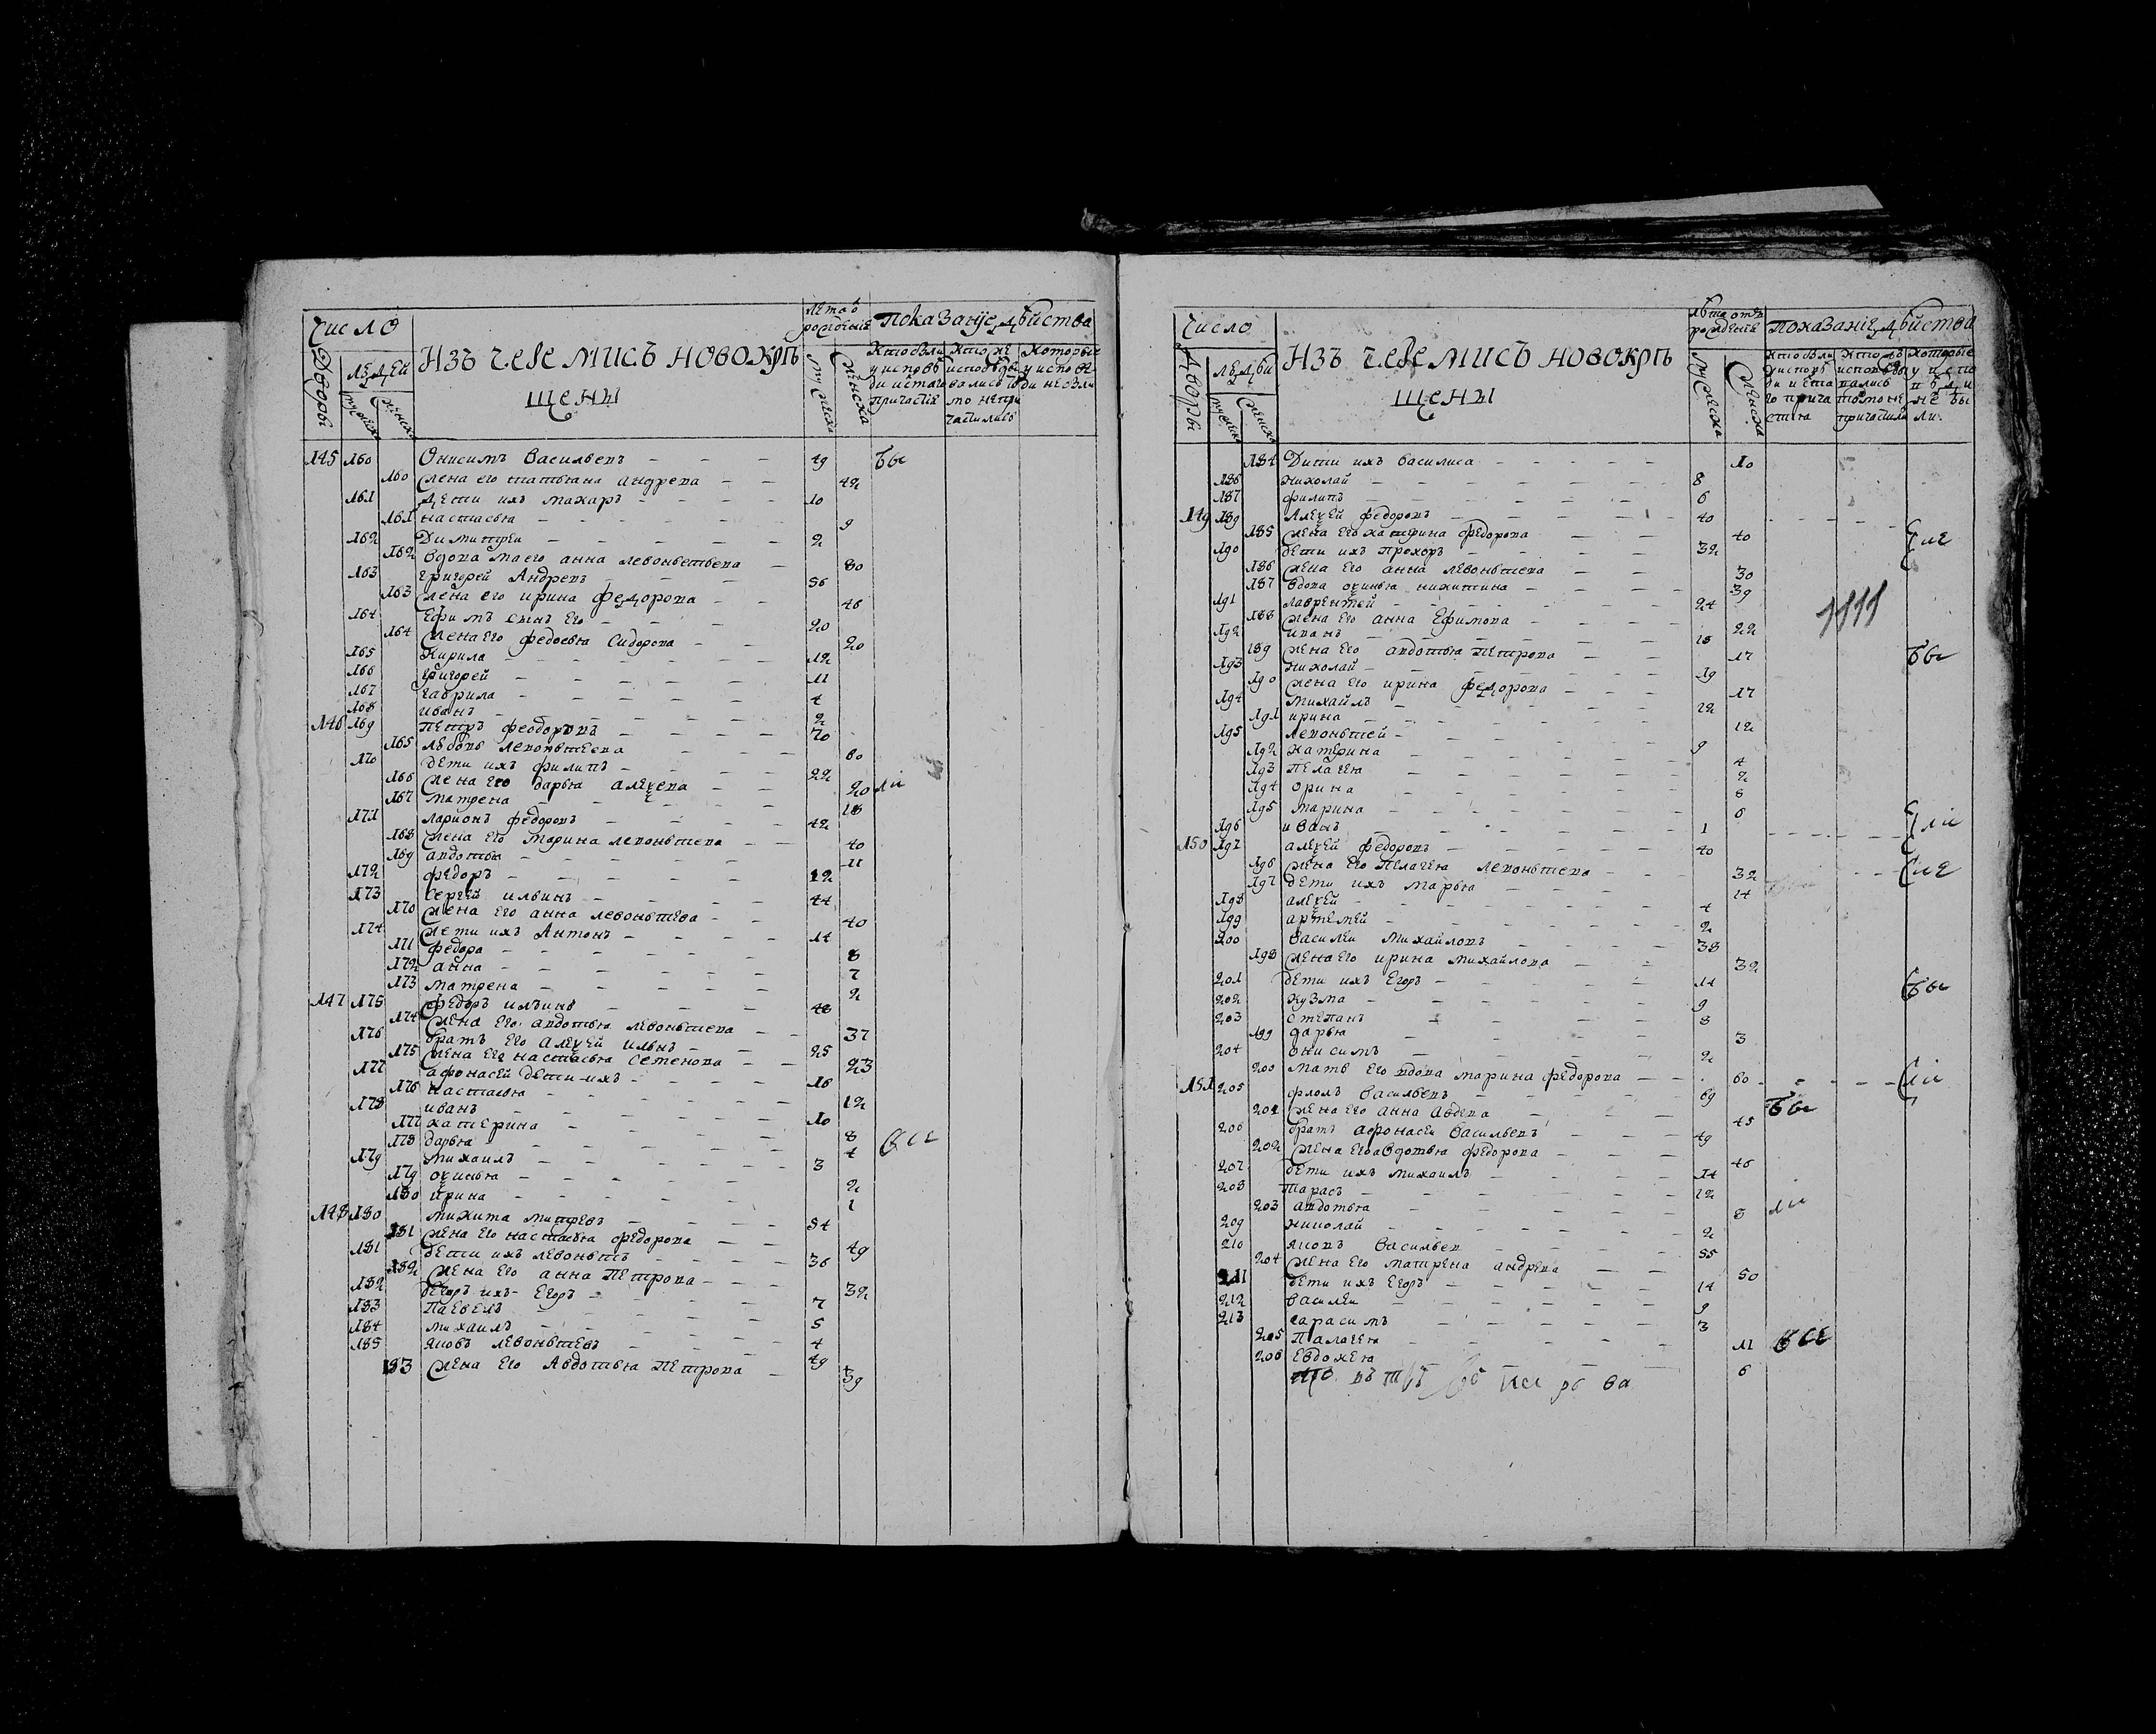 Число
Изъ черемисъ новокрѣ
щены
лета ѿ рождения
показание действа
Дворы
людей
мужеска
женска
мужеска
женска
Кто были у исповѣди и стаго причастие
Кто же исповѣдывались то не причастились
Которые у исповеди не были
145 160 Онисимъ Васильевъ 49 бы
160 жена его татьяна андрева 42
161 дети ихъ макаръ 10
161 настасья 9
162 Димитреи 2
162 вдова ма его анна левонътьева 80
163 григорей Андревъ 56
163 жена его ирина федорова 46
164 Ефимъ сынъ его 20
164 жена его федосья Сидорова 20
165 Кирила 12
166 григорей 11
167 гаврила 4
168 иванъ 2
146 169 Петръ феодоровъ 70
165 любовь левонътьева 60
170 дети ихъ филипъ 22
166 жена его дарья алеѯева 20 ли
167 матрена 18
171 ларионъ федоровъ 42
168 жена его марина левонътева 40
169 авдотья 11
172 федоръ 12
173 Сергей ильинъ 44
170 жена его анна левонътева 40
174 дети ихъ Антонъ 14
171 федора 8
172 анна 7
173 матрена 2
147 175 федоръ ильинъ 48
174 жена его авдотья левонътева 37
176 братъ его алеѯей ильинъ 25
175 жена его настасья семенова 23
177 афонасей дети ихъ 16
176 настасья 12
178 иванъ 10
177 катерина 8
178 дарья 4 все
179 михаилъ 3
179 оѯинья 2
180 ирина 1
148 180 микита митревъ 54
181 жена его настасья федорова 49
181 дети ихъ левонътей 36
182 жена его анна Петрова 32
182 дети ихъ Егоръ 7
183 Павелъ 5
184 михаилъ 4
185 яковъ левонътевъ 49
183 жена его Авдотья Петрова 39
Число
Изъ черемисъ новокрѣ
щены
лѣта отъ рождения
показание действа
Дворы
людѣй
мужеска
женска
мужеска
женска
184 Дити ихъ василиса 10
186 николай 8
187 филипъ 6
149 189 Алеѯей федоровъ 40
185 жена его катерина федорова 40 не
190 дети ихъ прохоръ 32
186 жена его анна левонътева 30
187 вдова оѯинья никитина 39
191 лаврентей 24
188 жена его анна Ефимова 22
192 иванъ 18
189 жена его авдотья Петрова 17 бы
193 николай 19
190 жена его ирина федорова 17
194 михайлъ 12
191 ирина 12
195 левонътей 9
192 катерина 4
193 Пелагея 2
194 орина 8
195 марина 6
196 иванъ 1 ли
150 197 алеѯей федоровъ 40
196 жена его Пелагея левонътева 32 не
197 дети ихъ марья 14
198 алеѯей 4
199 артемей 2
200 Василеи михайловъ 38
198 жена его ирина михайлова 32
201 дети ихъ Егоръ 11 бы
202 кузма 9
203 степанъ 8
199 дарья 3
204 онисимъ 2
200 мать его вдова марина федорова 60 ли
151 205 флолъ Васильевъ 69 бы
201 жена его анна авдева 45
206 братъ афонасеи Васильевъ 49
202 жена его авдотья федорова 46
207 дети ихъ михаилъ 14
208 тарасъ 12
203 авдотья 8 ли
209 николай 2
210 яковъ Васильев 55
204 жена его матрена андрева 50
211 дети ихъ Егоръ 14
212 василеи 9
213 гарасимъ 3
205 Палагея 11 все
206 Евдокея 6